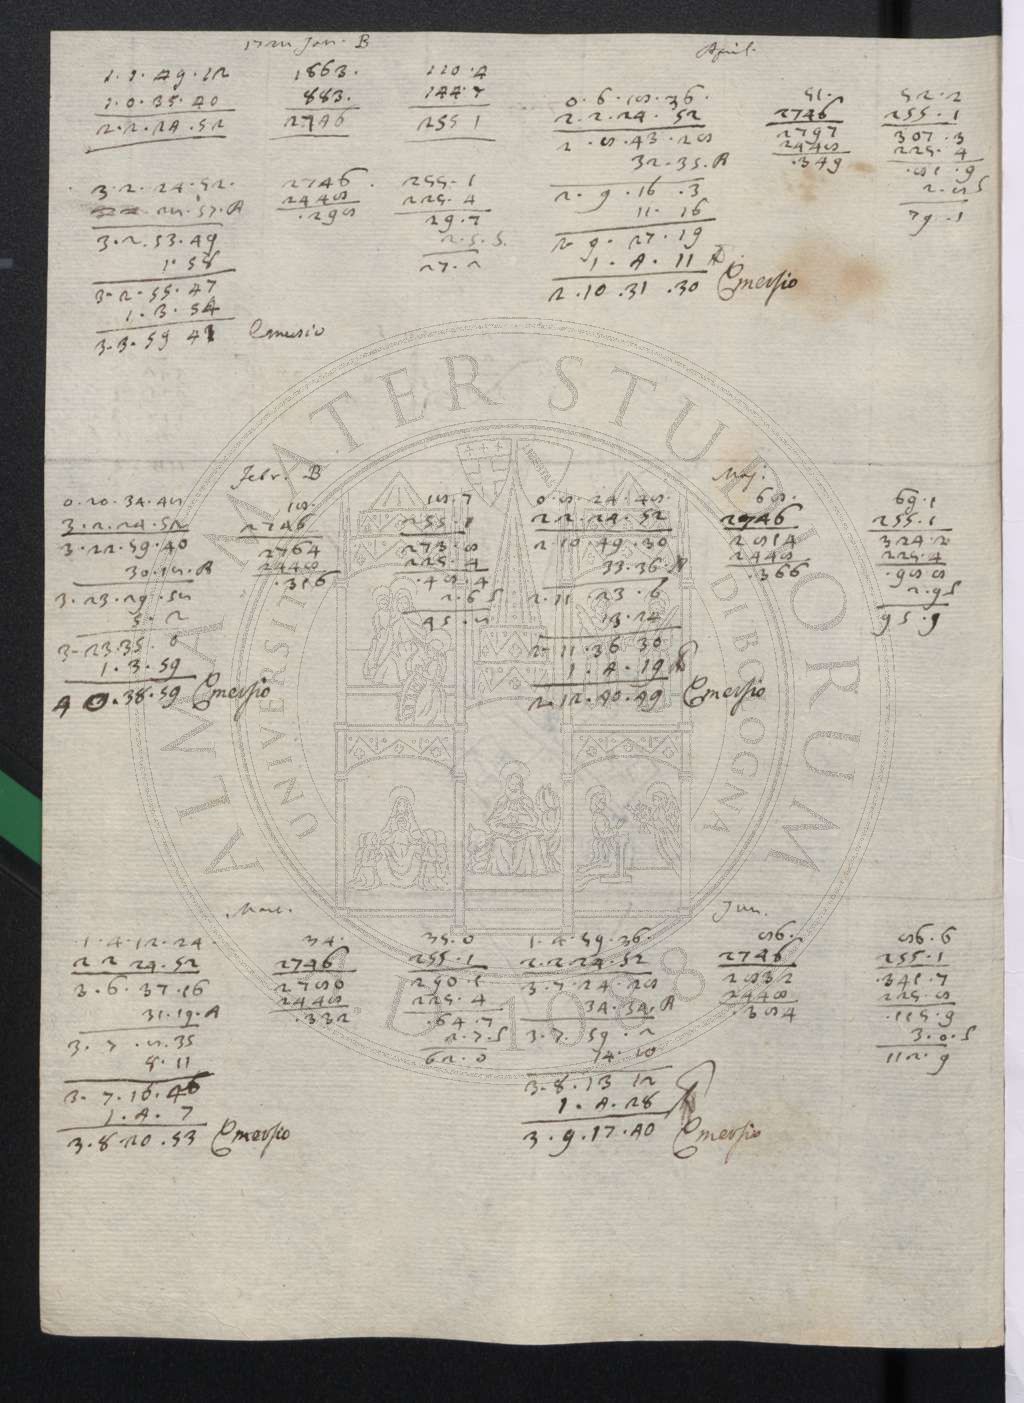 1722 Jan. B
1.1.49.12 1863. 110.4
1.0.35.40 883. 144.7
2.2.24.52 2746 255 1
3.2.24.52. 2746. 255.1
28.57.A 2448 225.4
3.2.53.49 .298 29.7
1.58 2.5.S.
3.2.55.47 27.2
1.3.54
3.3.59 41 Emersio
April.
0.6.18.36. 51. 52.2
2.2.24.52 2746 255.1
2.8.43.28 2797 307.3
32.35.A 2448 225.4
2.9.16.3 .349 .81.9
11.16 2.8S
2.9.27.19 79.1
1.4.11 A.
2.10.31.30 Emersio
Febr. B
0.20.34.48 18. 18.7
3.2.24.52 2746 255.1
3.22.59.40 2764 273.8
30.18.A 2448 225.4
3.23.29.58 .316 .48.4
5.2 2.6S
3.23.35.0 45.8
1.3.59
4 0.38.59 Emersio
Maj.
0.8.24.48. 68. 69.1
2.2.24.52 2746 255.1
2.10.49.30 2814 324.2
33.36.A 2448 225.4
2.11.23.6 .366 .98 8
13.24 2.9S
2.11.36 30 95.9
1.4.19 A
2.12.40.49 Emersio
Mart.
1.4.12.24. 34. 35.0
2 2 24.52 2746 255.1
3.6.37.16 2780 290.1
31.19.A 2448 225.4
3.7.8.35 .332 .64.7
8.11 2.7.S
3.7.16.46 62.0
1.4.7
3.8.20.53 Emersio
Jun.
1.4.59.36. 86. 86.6
2.2.24.52 2746 255.1
3.7.24.28 2832 .341.7
34.34.A 2448 225.8
3.7.59.2 .384 .115.9
14.10 3.0.S
3.8.13 12 112.9
1.4.28 A
3.9.17.40 Emersio
ALMA MATER STUDIORUM
UNIVERSITÀ DI BOLOGNA
A.D. 1088